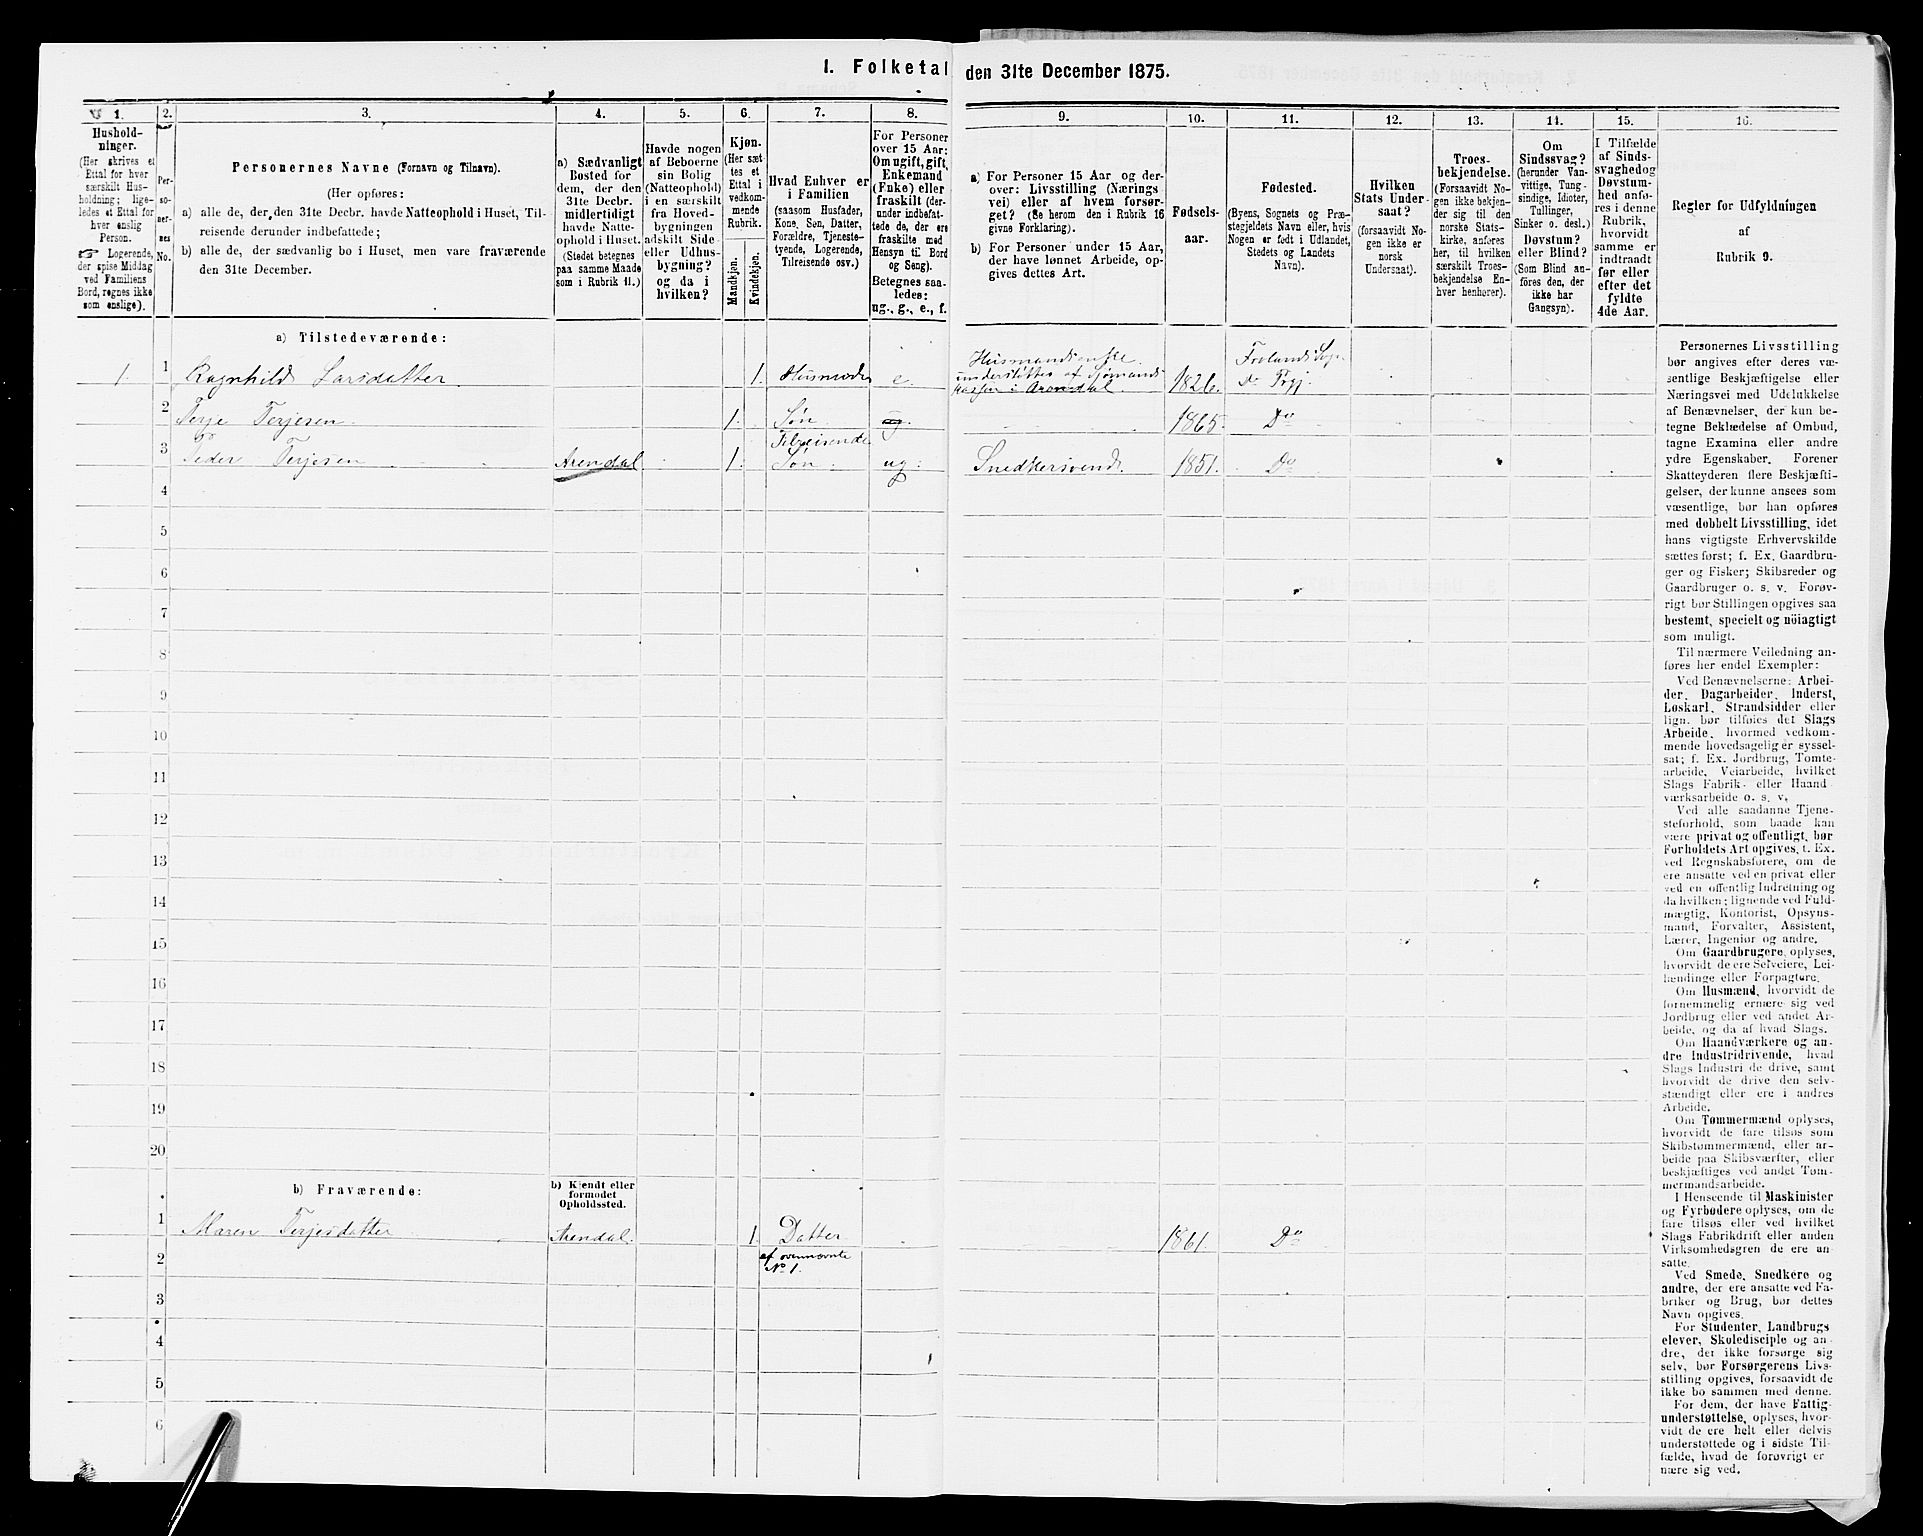 1. Folketal den 31te December 1875.
1.
2.
3.
4.
5.
6.
7.
8.
9.
10.
11.
12.
13.
14.
15.
16.
Hushold-
ninger.
(Her skrives et
Ettal for hver
særskilt Hus-
holdning; lige-
ledes et Ettal for
hver enslig
Person.
☞ Logerende,
der spise Middag
ved Familiens
Bord, regnes ikke
som enslige).
Per-
so-
ner-
nes
No.
Personernes Navne (Fornavn og Tilnavn).
(Her opføres:
a) alle de, der den 31te Decbr. havde Natteophold i Huset, Til-
reisende derunder indbefattede;
b) alle de, der sædvanlig bo i Huset, men vare fraværende
den 31te December.
a) Sædvanligt
Bosted for
dem, der den
31te Decbr.
midlertidigt
havde Natte-
ophold i Huset.
(Stedet betegnes
paa samme Maade
som i Rubrik 11.)
Havde nogen
af Beboerne
sin Bolig
(Natteophold)
i en særskilt
fra Hoved-
bygningen
adskilt Side-
eller Udhus-
bygning?
og da i
hvilken?
Kjøn.
(Her sæt-
tes et
Ettal i
vedkom-
mende
Rubrik.
Mandkjøn.
Kvindekjøn.
Hvad Enhver er
i Familien
(saasom Husfader,
Kone, Søn, Datter,
Forældre, Tjeneste-
tyende, Logerende,
Tilreisende osv.)
For Personer
over 15 Aar:
Om ugift, gift,
Enkemand
(Enke) eller
fraskilt (der-
under indbefat-
tede de, der ere
fraskilte med
Hensyn til Bord
og Seng).
Betegnes saa-
ledes:
ug., g., e., f.
a) For Personer 15 Aar og der-
over: Livsstilling (Nærings-
vei) eller af hvem forsør-
get? (Se herom den i Rubrik 16
givne Forklaring).
b) For Personer under 15 Aar,
der have lønnet Arbeide, op-
gives dettes Art.
Fødsels-
aar.
Fødested.
(Byens, Sognets og Præ-
stegjeldets Navn eller, hvis
Nogen er født i Udlandet,
Stedets og Landets
Navn).
Hvilken
Stats Under-
saat?
(forsaavidt No-
gen ikke er
norsk
Undersaat).
Troes-
bekjendelse.
(Forsaavidt No-
gen ikke bekjen-
der sig til den
norske Stats-
kirke, anføres
her, til hvilken
særskilt Troes-
bekjendelse En-
hver henhører).
Om
Sindssvag?
(herunder Van-
vittige, Tung-
sindige, Idioter,
Tullinger,
Sinker o. desl.)
Døvstum?
eller Blind?
(Som Blind an-
føres den, der
ikke har
Gangsyn).
I Tilfælde
af Sinds-
svaghed og
Døvstum-
hed anfø-
res i denne
Rubrik,
hvorvidt
samme er
indtraadt
før eller
efter det
fyldte
4de Aar.
Regler for Udfyldningen
af
Rubrik 9.
a) Tilstedeværende:
1. 1 Ragnhild Larsdatter 1. Husmoder e. Husmandsenke. understøttes af Sjømands kassen i Arendal. 1826. Frolands Sogn Do Prgj.
2 Terje Terjesen 1. Søn ug. 1865. Do
3 Peder Terjesen Arendal 1. Tilreisende Søn ug. Snedkersvend. 1851. Do
4
5
6
7
8
9
10
11
12
13
14
15
16
17
18
19
20
b) Fraværende:
b) Kjendt eller
formodet
Opholdssted.
1 Maren Terjesdatter Arendal. 1. Datter 1861. Do
2 af ovennævnte
No 1.
3
4
5
6
Personernes Livsstilling
bør angives efter deres væ-
sentlige Beskjæftigelse eller
Næringsvei med Udelukkelse
af Benævnelser, der kun be-
tegne Beklædelse af Ombud,
tagne Examina eller andre
ydre Egenskaber. Forener
Skatteyderen flere Beskjæfti-
gelser, der kunne ansees som
væsentlige, bør han opføres
med dobbelt Livsstilling, idet
hans vigtigste Erhvervskilde
sættes først; f. Ex. Gaardbru-
ger og Fisker; Skibsreder og
Gaardbruger o. s. v. Forøv-
rigt bør Stillingen opgives saa
bestemt, specielt og nöiagtigt
som muligt.
Til nærmere Veiledning an-
føres her endel Exempler:
Ved Benævnelserne: Arbei-
der, Dagarbeider, Inderst,
Løskarl, Strandsidder eller
lign. bør tilføies det Slags
Arbeide, hvormed vedkom-
mende hovedsagelig er syssel-
sat; f. Ex. Jordbrug, Tomte-
arbeide, Veiarbeide, hvilket
Slags Fabrik- eller Haand-
værksarbeide o. s. v.
Ved alle saadanne Tjene-
steforhold, som baade kan
være privat og offentligt, bør
Forholdets Art opgives, f. Ex.
ved Regnskabsførere, om de
ere ansatte ved en privat eller
ved en offentlig Indretning og
da hvilken; lignende ved Fuld-
mægtig, Kontorist, Opsyns-
mand, Forvalter, Assistent,
Lærer, Ingeniør og andre.
Om Gaardbrugere, oplyses,
hvorvidt de ere Selveiere, Lei-
lændinge eller Forpagtere.
Om Husmænd, hvorvidt de
fornemmelig ernære sig ved
Jordbrug eller ved andet Ar-
beide, og da af hvad Slags.
Om Haandværkere og an-
dre Industridrivende, hvad
Slags Industri de drive, samt
hvorvidt de drive den selv-
stændigt eller ere i andres
Arbeide.
Om Tømmermænd oplyses,
hvorvidt de fare tilsøs som
Skibstømmermænd, eller ar-
beide paa Skibsværfter, eller
beskjæftiges ved andet Tøm-
mermandsarbeide.
I Henseende til Maskinister
og Fyrbødere oplyses, om de
fare tilsøs eller ved hvilket
Slags Fabrikdrift eller anden
Virksomhedsgren de ere an-
satte.
Ved Smede, Snedkere og
andre, der ere ansatte ved Fa-
briker og Brug, bør dettes
Navn opgives.
For Studenter, Landbrugs-
elever, Skoledisciple og an-
dre, der ikke forsørge sig
selv, bør Forsørgerens Livs-
stilling opgives, forsaavidt de
ikke bo sammen med denne.
For dem, der have Fattig-
understøttelse, oplyses, hvor-
vidt de ere helt eller delvis
understøttede og i sidste Til-
fælde, hvad de forøvrigt er-
nære sig ved.